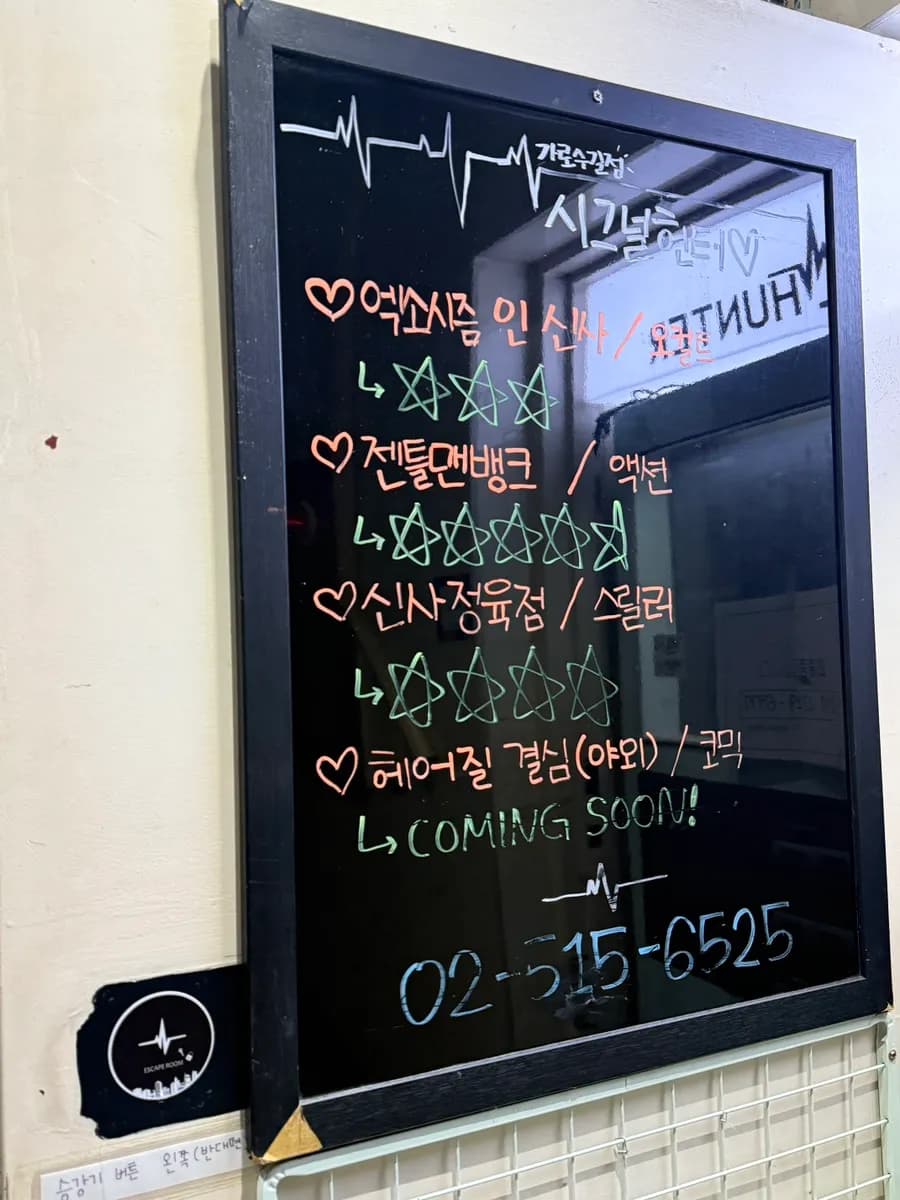 가로수길점
시그널헌터♡
♡엑소시즘 인 신사 / 오컬트
↳☆☆☆
♡젠틀맨뱅크 / 액션
↳☆☆☆☆☆
♡신사정육점 / 스릴러
↳☆☆☆☆
♡헤어질 결심(야외) / 코믹
↳COMING SOON!
02-515-6525
HUNTER
ESCAPE ROOM
승강기 버튼 왼쪽(반대편